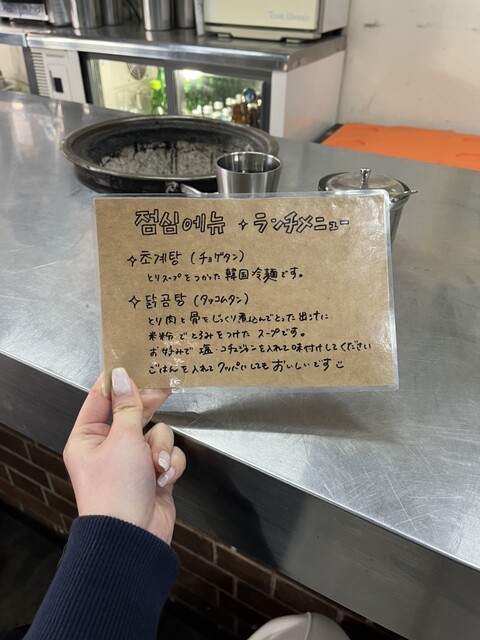 점심메뉴 ✧ ランチメニュー
✧ 초계탕 (チョゲタン)
とりスープをつかった韓国冷麺です。
✧ 닭곰탕 (タッコムタン)
とり肉と骨をじっくり煮込んでとった出汁に
米粉でとろみをつけたスープです。
お好みで塩・コチュジャンを入れて味付けしてください
ごはんを入れてクッパにしてもおいしいです☺